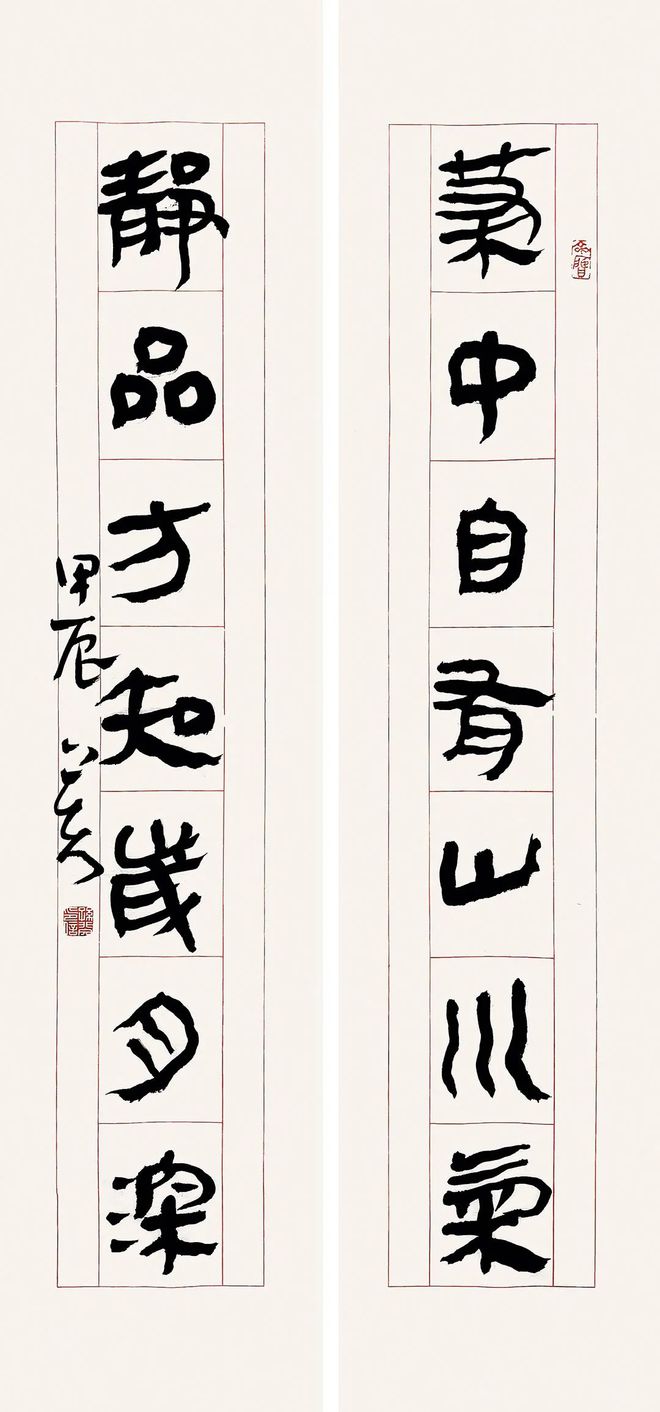 中自有山川氣
靜品方知歲月深
甲辰